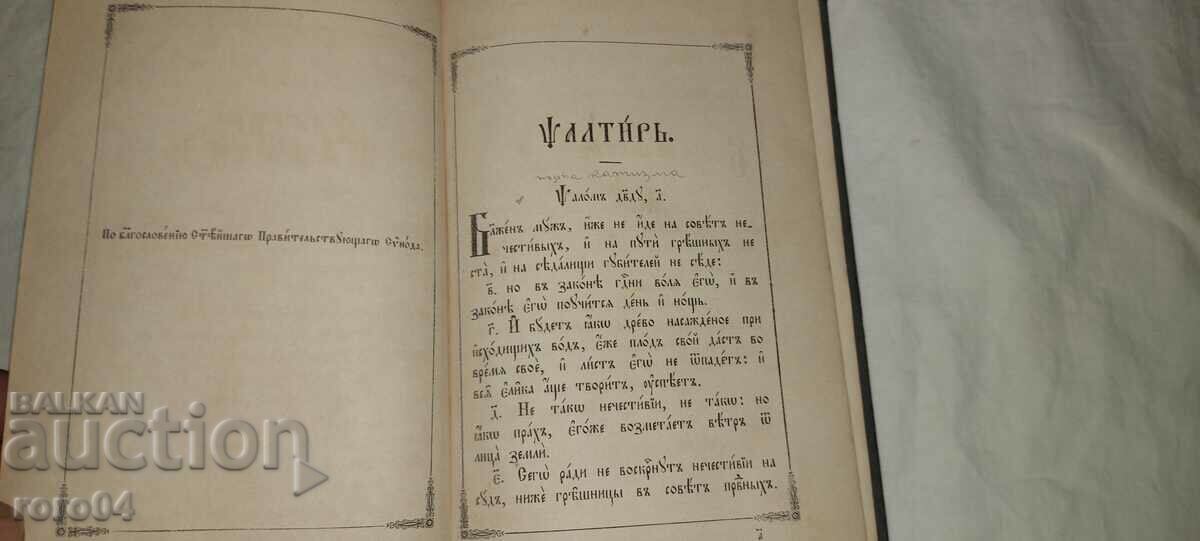 По бл҃гослове́нїю Ст҃ѣ́йшагѡ Прави́тельствующагѡ Сѷно́да.
ѰАЛТИ́РЬ.
катизма
Ѱало́мъ дв҃ду, а҃.
Бл҃же́нъ мꙋ́жъ, и҆́же не и҆́де на совѣ́тъ не-
чести́выхъ, и҆ на пꙋти́ грѣ́шныхъ не
ста̀, и҆ на сѣда́лищи гꙋби́телей не сѣ́де:
в҃. но въ зако́нѣ гд҇ни во́лѧ є҆гѡ̀, и҆ въ
зако́нѣ є҆гѡ̀ поꙋчи́тсѧ де́нь и҆ но́щь.
г҃. И҆ бꙋ́детъ ꙗ҆́кѡ дре́во насажде́ное при
и҆схо́дищихъ во́дъ, є҆́же пло́дъ сво́й да́стъ во
вре́мѧ своѐ, и҆ ли́стъ є҆гѡ̀ не ѿпаде́тъ: и҆
всѧ҄ є҆ли҄ка а҆́ще твори́тъ, ᲂу҆спѣ́етъ.
д҃. Не та́кѡ нечести́вїи, не та́кѡ: но
ꙗ҆́кѡ пра́хъ, є҆го́же возмета́етъ вѣ́тръ ѿ
лица̀ землѝ.
є҃. Сегѡ̀ ра́ди не воскре́снꙋтъ нечести́вїи на
сꙋ́дъ, нижѐ грѣ҄шницы въ совѣ́тъ првⷣныхъ.
а҃
BALKAN
auction
roro04